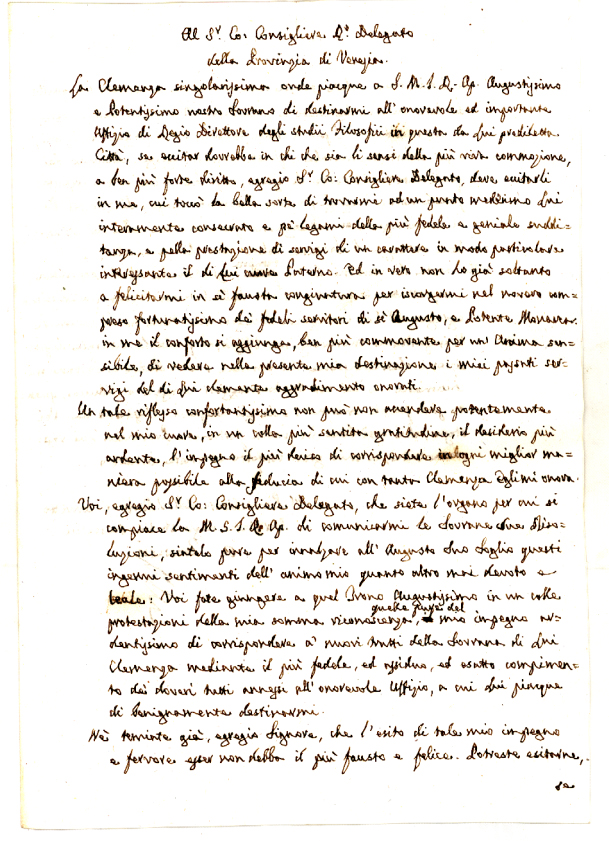 Al S.r Co: Consigliere R.o Delegato
della Provinzia di Venezia.
La Clemenza singolarissima onde piacque a S. M. I. R. Ap. Augustissimo
e Potentissimo nostro Sovrano di destinarmi all'onorevole ed importante
Uffizio di Regio Direttore degli studii Filosofici in questa da Lui prediletta
Città, se eccitar dovrebbe in chi che sia li sensi della più viva commozione,
a ben più forte diritto, egregio S.r Co: Consigliere Delegato, deve eccitarli
in me, cui toccò la bella sorte di trovarmi ad un punto medesimo Lui
interamente consecrato e pe' legami della più fedele e geniale suddi=
tanza, e pella prestazione di servigi di un carattere in modo particolare
interessante il di Lui cuore Paterno. Ed in vero non ho già soltanto
a felicitarmi in sì fausta congiuntura per iscorgermi nel novero com=
preso fortunatissimo dei fedeli servitori di sì Augusto, e Potente Monarca:
in me il conforto si aggiunge, ben più commovente per un'Anima sen=
sibile, di vedere nella presente mia destinazione i miei passati ser=
vigi del di Lui clemente aggradimento onorati.
Un tale riflesso confortantissimo non può non accendere potentemente
nel mio cuore, in un colla più sentita gratitudine, il desiderio più
ardente, l'impegno il più deciso di corrispondere in ogni miglior ma=
niera possibile alla fiducia di cui con tanta Clemenza Egli mi onora.
Voi, egregio S.r Co: Consigliere Delegato, che siete l'organo per cui si
compiace la M. S. I. R. Ap. di comunicarmi le Sovrane Sue Riso=
luzioni, sietelo pure per innalzare all'Augusto Suo Soglio questi
ingenui sentimenti dell'animo mio quanto altro mai devoto e
leale: Voi fate giungere a quel Trono Augustissimo in un colle
protestazioni della mia somma riconoscenza, quelle pure del mio impegno ar=
dentissimo di corrispondere a' nuovi tratti della Sovrana di Lui
Clemenza mediante il più fedele, ed assiduo, ed esatto compimen=
to dei doveri tutti annessi all'onorevole Uffizio, a cui Lui piacque
di benignamente destinarmi.
Nè temiate già, egregio Signore, che l'esito di tale mio impegno
e fervore esser non debba il più fausto e felice. Potreste esitarne,
se